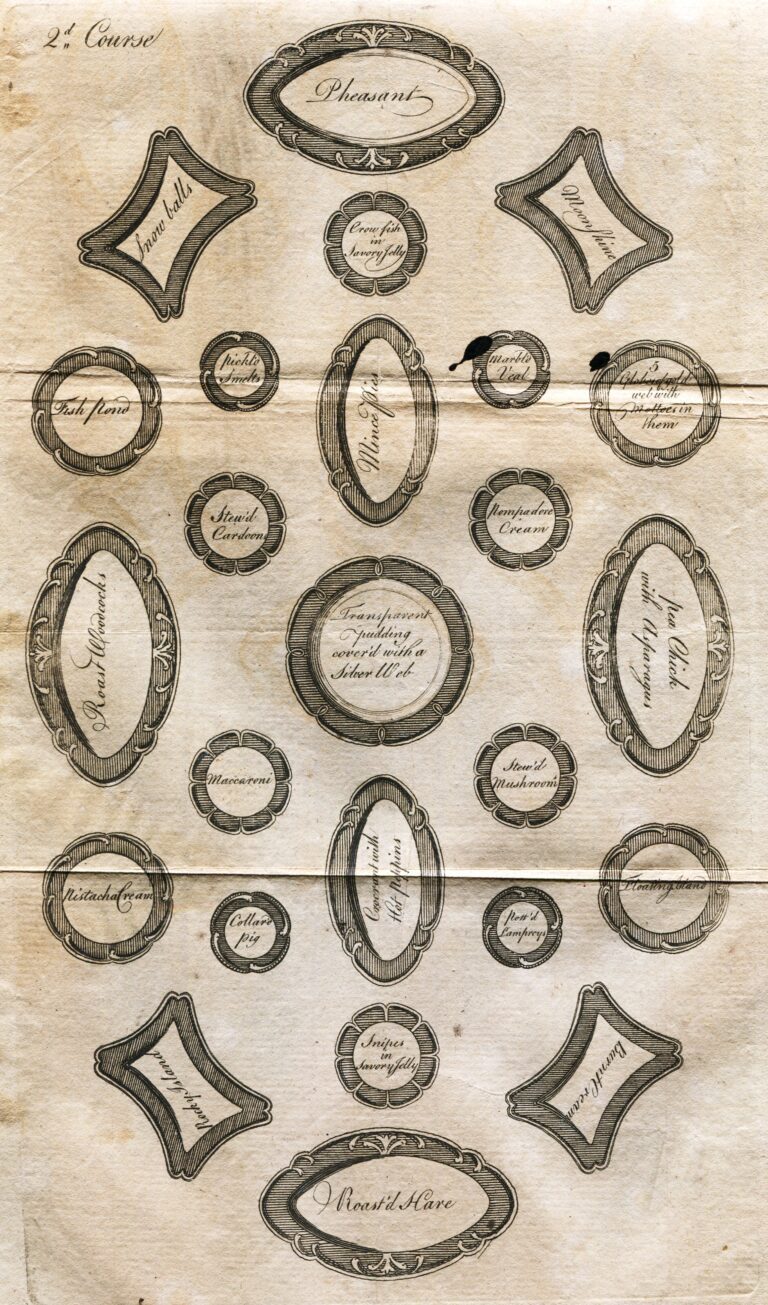 2d Course
Pheasant
Snow balls
Craw fish
in
Savory Jelly
Moonshine
Fish pond
Pickl'd
Smelts
Mince Pies
Marbl'd
Veal
5
Globes of gold
web with
Mottoes in
them
Stew'd
Cardoon
Pompadore
Cream
Roast Woodcocks
Transparent
pudding
cover'd with a
Silver Web
pea Chick
with Asparagus
Maccaroni
Stew'd
Mushroom
Pistacha Cream
Collar'd
pig
Crocrant with
Hot Pippins
Pott'd
Lampreys
Floating Island
Rocky Island
Snipes
in
Savory Jelly
Burnt Cream
Roast'd Hare